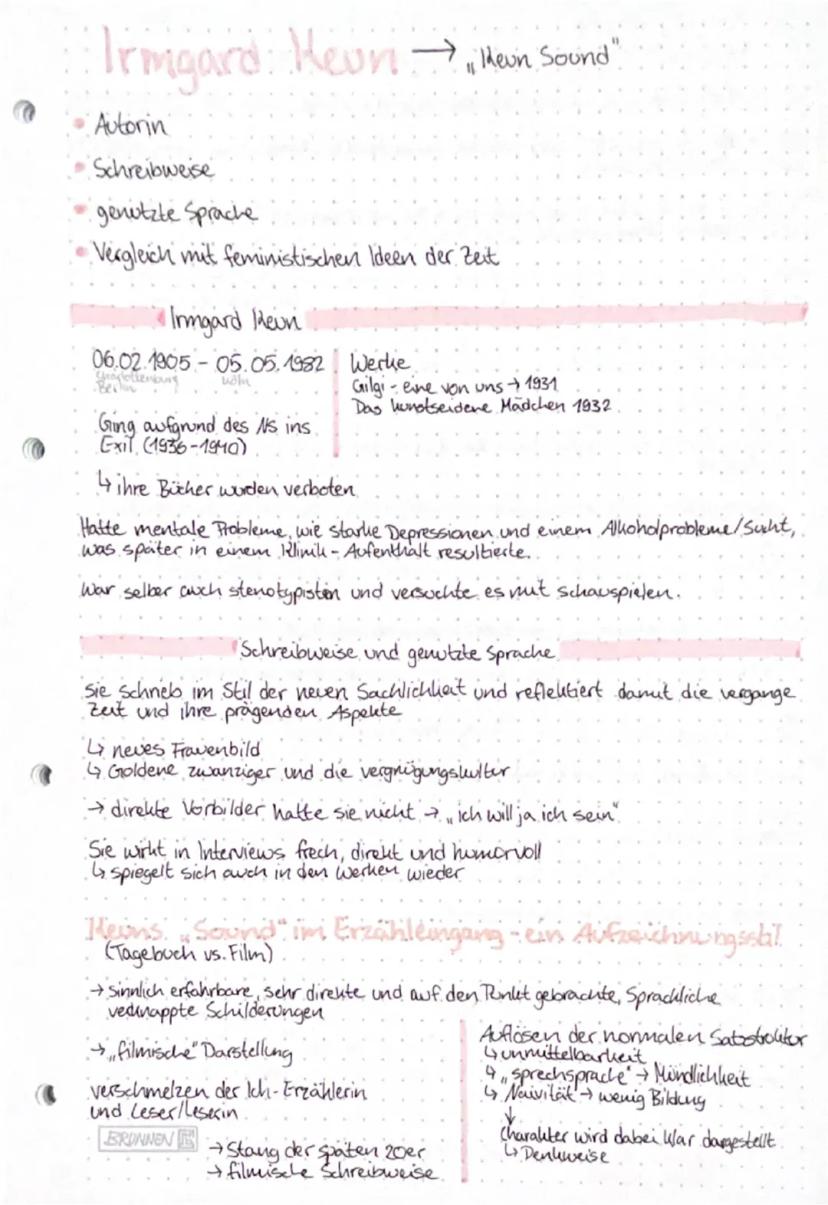 Irmgard Keun → „Keun Sound"
• Autorin
• Schreibweise
• genutzte Sprache
• Vergleich mit feministischen Ideen der Zeit
Irmgard Keun
06.02.1905 - 05.05.1982
Charlottenburg Köln
Berlin
Ging aufgrund des NS ins
Exil (1936-1940)
↳ ihre Bücher wurden verboten
Werke
Gilgi - eine von uns → 1931
Das kunstseidene Mädchen 1932
Hatte mentale Probleme, wie starke Depressionen und einem Alkoholprobleme/Sucht,
was später in einem Klinik-Aufenthalt resultierte.
War selber auch stenotypistin und versuchte es mit schauspielen.
Schreibweise und genutzte Sprache
sie schrieb im Stil der neuen Sachlichkeit und reflektiert damit die vergange
Zeit und ihre prägenden Aspekte
↳ neues Frauenbild
↳ Goldene zwanziger und die vergnügungskultur
→ direkte Vorbilder hatte sie nicht → „ich will ja ich sein"
Sie wirkt in Interviews frech, direkt und humorvoll
↳ spiegelt sich auch in den Werken wieder
Keuns „Sound" im Erzähleingang - ein Aufzeichnungsstil
(Tagebuch vs. Film)
→ sinnlich erfahrbare, sehr direkte und auf den Punkt gebrachte, Sprachliche
verknappte Schilderungen
→ „filmische" Darstellung
verschmelzen der Ich-Erzählerin
und Leser/Leserin
BRUNNEN
→ Slang der späten 20er
→ filmische Schreibweise
Auflösen der normalen Satzstruktur
↳ unmittelbarkeit
↳ „sprechsprache" → Mündlichkeit
↳ Naivität → wenig Bildung
↓
Charakter wird dabei klar dargestellt
↳ Denkweise